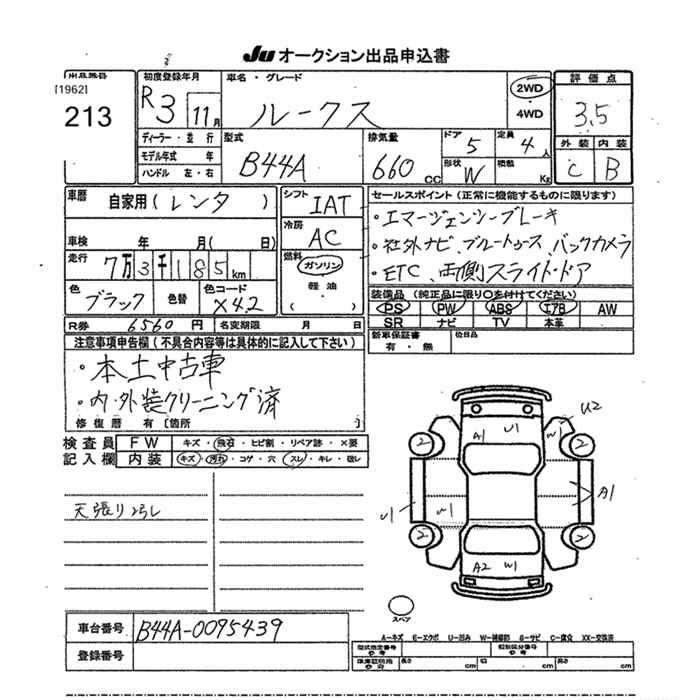 Ju オークション出品申込書
出品番号 初度登録年月 車名・グレード 評価点
[1962]
213 R3 11月 ルークス 2WD 3.5
4WD
ディーラー・並行 型式 排気量 ドア 定員 外装 内装
モデル年式 年 B44A 660cc 5 4人 C B
ハンドル 左・右 形状 W 積載 Kg
車歴 自家用(レンタ) シフト IAT セールスポイント(正常に機能するものに限ります)
車検 年 月(日) 冷房 AC ・エマージェンシーブレーキ
走行 7万3千185km 燃料 ガソリン ・社外ナビ、ブルートゥース、バックカメラ
軽油 ・ETC、両側スライドドア
色 ブラック 色替 色コード X42 ( )
装備品(純正品に限り○を付けてください)
PS PW ABS エアB AW
R券 6560円 名変期限 月 日 SR ナビ TV 本革
注意事項申告欄(不具合内容等は具体的に記入して下さい) 新車保証書 後日品
有・無
・本土中古車
・内・外装クリーニング済
修復歴 有〔箇所 〕
検査員 FW キズ・飛石・ヒビ割・リペア跡・×要
記入欄 内装 キズ・汚れ・コゲ・穴・スレ・キレ・破レ
天張りヨゴレ
U2
A1 U1 W
2 2
A1
U1 W1
2 2
A2 W1
スペア
車台番号 B44A-0095439
A-キズ E-エクボ U-凹み W-補修跡 S-サビ C-腐食 XX-交換済
登録番号 型式指定番号 類別区分番号
長さ cm 幅 cm 高さ cm